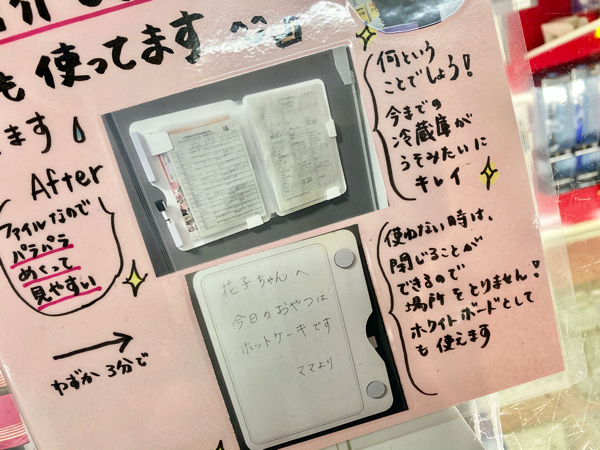 も使ってます^^
ます
After
ファイルなので
パラパラ
めくって
見やすい
わずか3分で
何という
ことでしょう!
今までの
冷蔵庫が
うそみたいに
キレイ
花子ちゃんへ
今日のおやつは
ホットケーキです
ママより
使わない時は、
閉じることが
できるので
場所をとりません!
ホワイトボードとして
も使えます